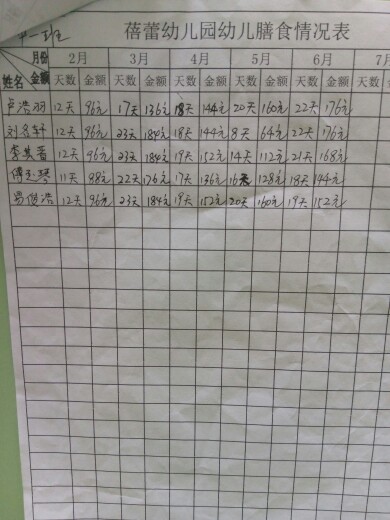 中一班 蓓蕾幼儿园幼儿膳食情况表
月份 2月 3月 4月 5月 6月 7月
姓名 金额 天数 金额 天数 金额 天数 金额 天数 金额 天数 金额 天数
12天 96元 17天 136元 18天 144元 20天 160元 22天 176元
12天 96元 23天 184元 18天 144元 8天 64元 22天 176元
12天 96元 23天 184元 19天 152元 14天 112元 21天 168元
11天 88元 22天 176元 17天 136元 16天 128元 18天 144元
12天 96元 23天 184元 19天 152元 20天 160元 19天 152元